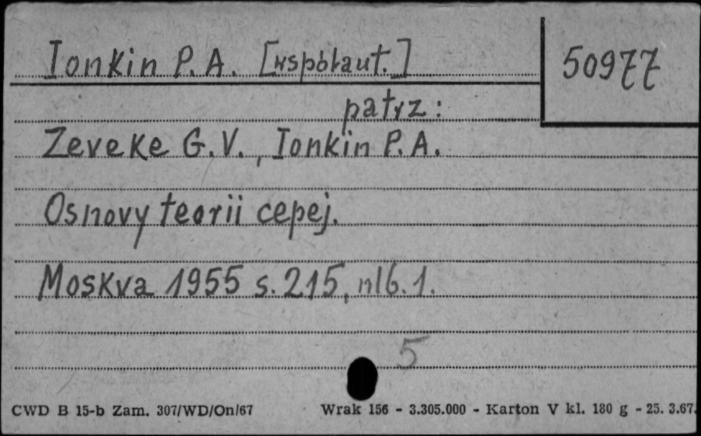 Ionkin P.A. [współaut.]
50977
patrz:
Zeveke G.V., Ionkin P.A.
Osnovy teorii cepej.
Moskva 1955 s. 215, nlb. 1.
5
CWD B 15-b Zam. 307/WD/On/67 Wrak 156 - 3.305.000 - Karton V kl. 180 g - 25. 3.67.